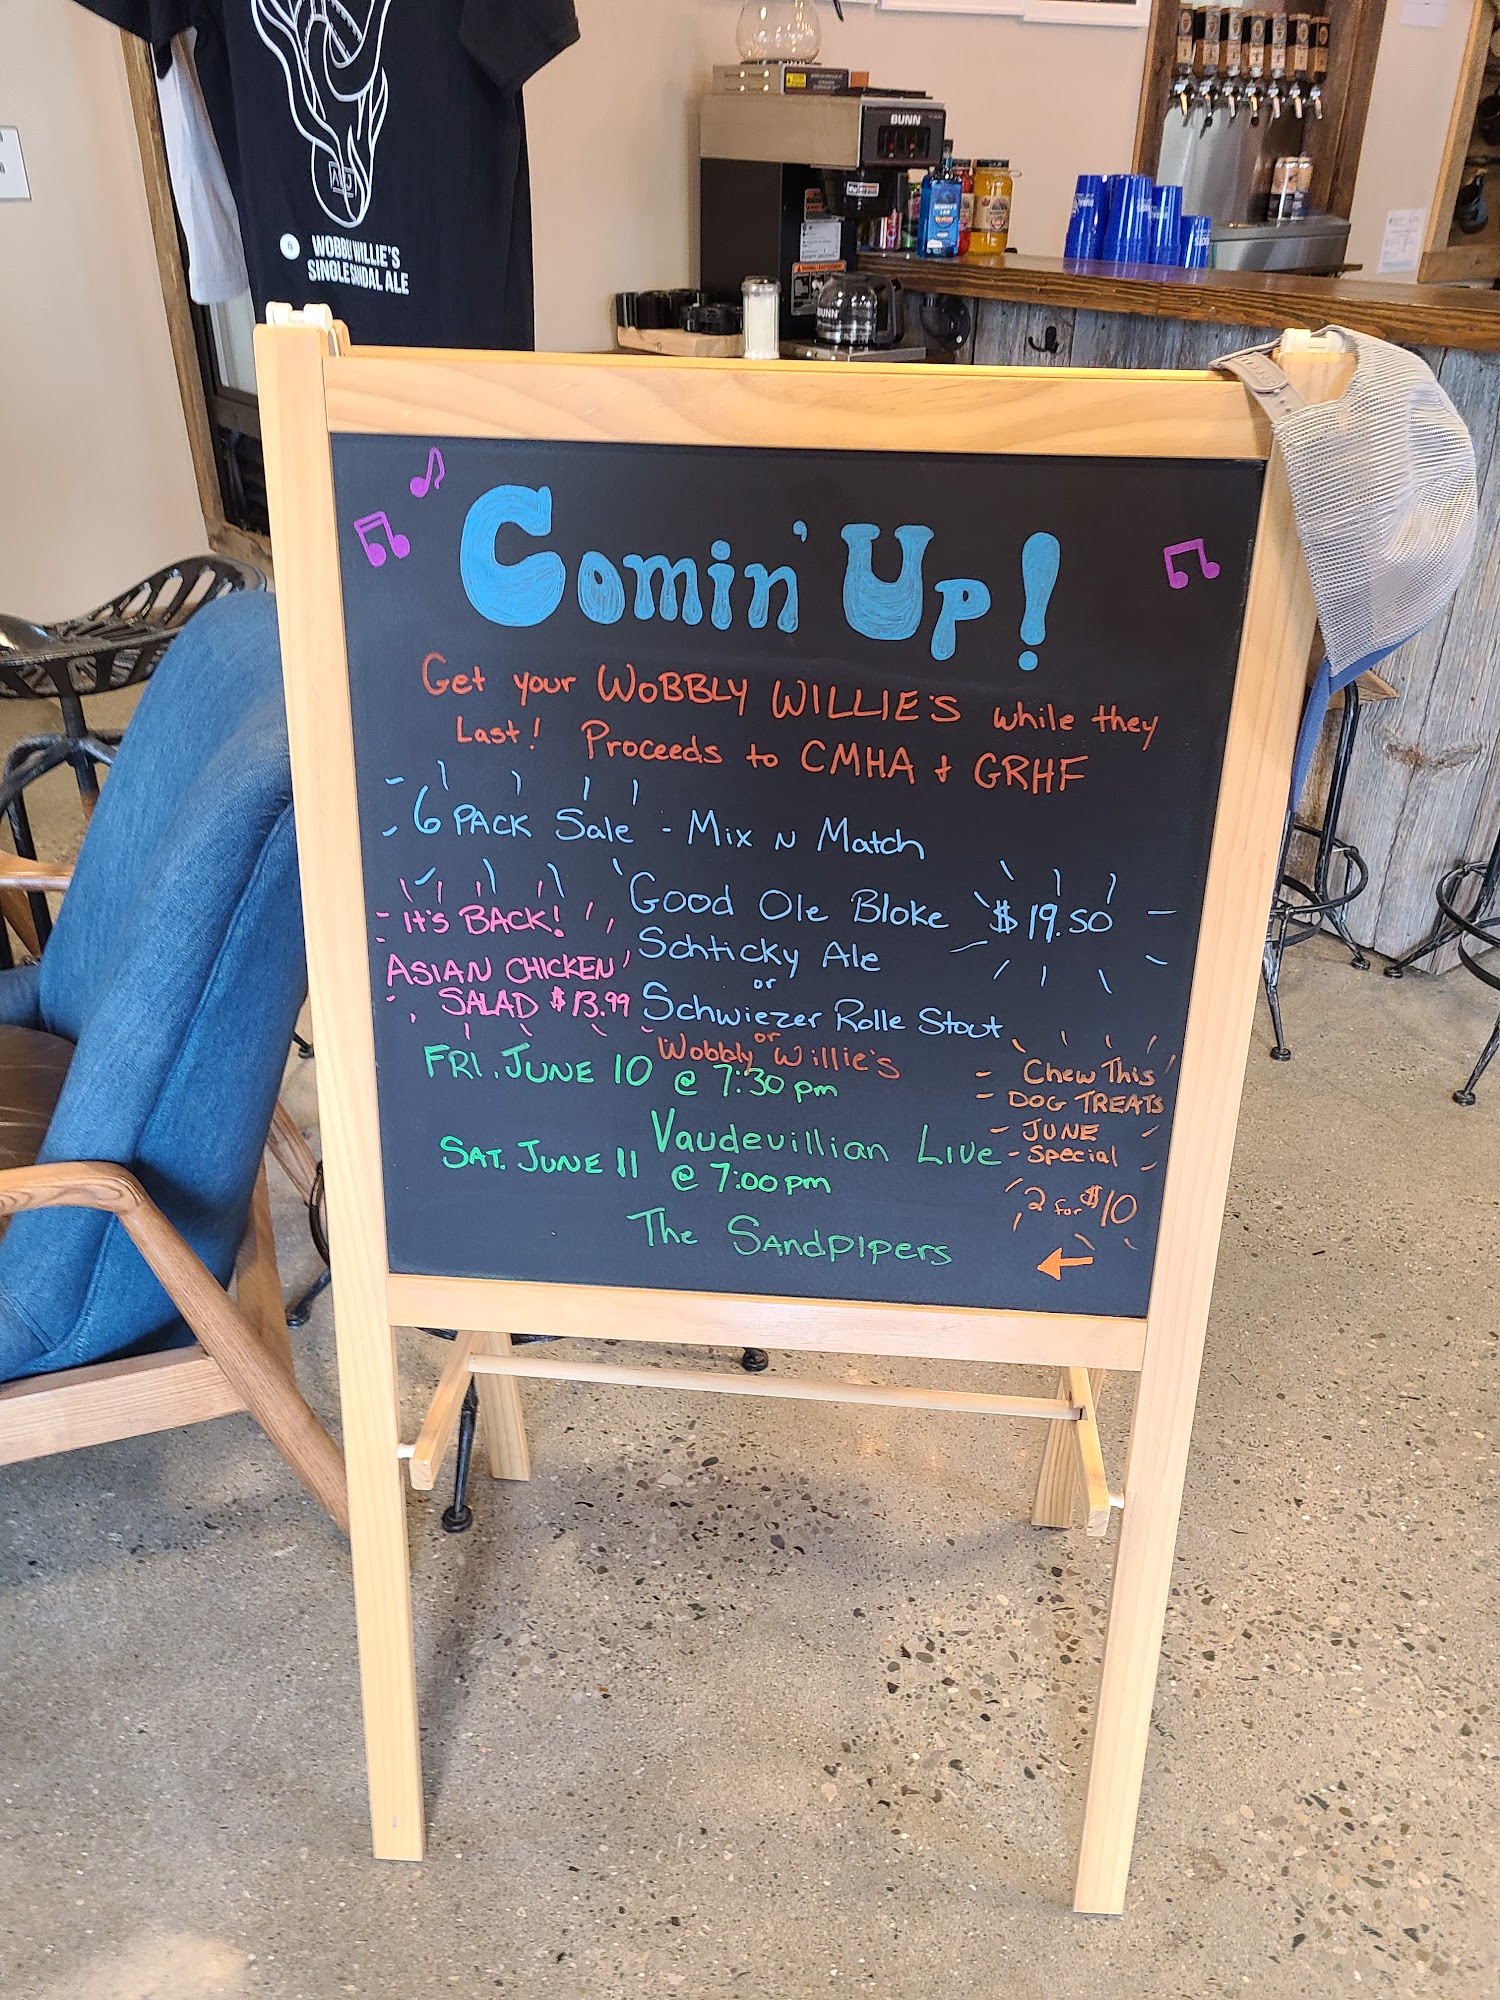 WOBBLY WILLIE'S
SINGLE SANDAL ALE
BUNN
BUNN
Comin' Up!
Get your WOBBLY WILLIE'S while they
Last! Proceeds to CMHA & GRHF
6 PACK Sale - Mix N Match
Good Ole Bloke
$19.50
Schticky Ale
or
Schwiezer Rolle Stout
or
Wobbly Willie's
It's BACK!
ASIAN CHICKEN
SALAD $13.99
FRI. JUNE 10 @ 7:30 pm
Vaudevillian Live
SAT. JUNE 11 @ 7:00 pm
The Sandpipers
Chew This
DOG TREATS
JUNE
Special
2 for $10